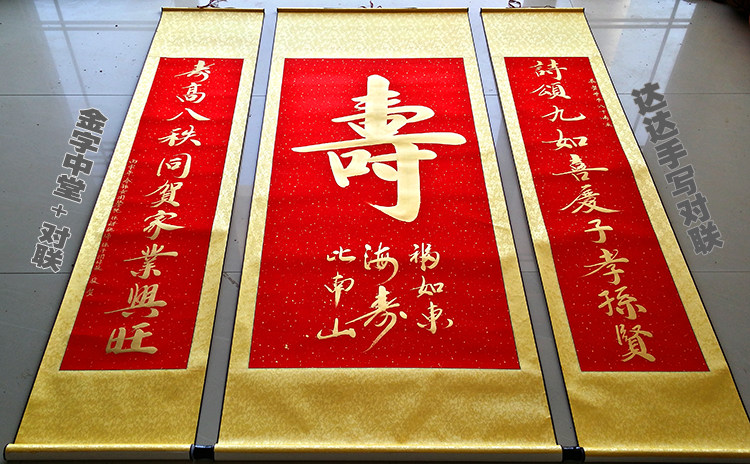 詩頌九如喜慶子孝孫賢
壽
福如東
海寿
比南山
寿高八秩同賀家業興旺
金字中堂+对联
达达手写对联